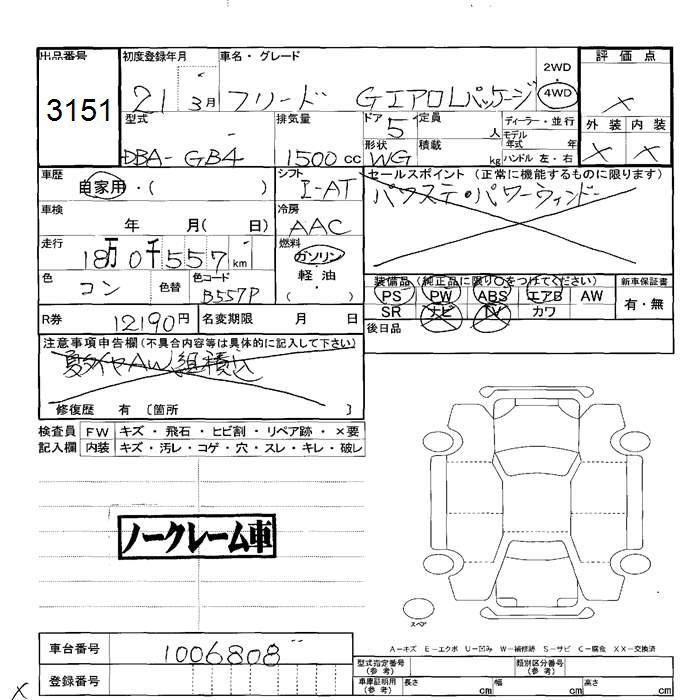 出品番号 初度登録年月 車名・グレード 2WD 4WD 評価点
3151 21 3月 フリード GエアロLパッケージ X
型式 排気量 ドア 定員 ディーラー・並行 外装 内装
DBA-GB4 1500cc 5 人 モデル年式 年 X X
形状 積載 kg ハンドル 左・右
WG
車歴 シフト セールスポイント (正常に機能するものに限ります)
自家用・( ) I-AT パワステ・パワーウィンドー
車検 冷房
年 月( 日) AAC
走行 燃料
18万0千557km ガソリン
色 色替 色コード 軽油
コン B557P ( )
装備品 (純正品に限り○をつけてください) 新車保証書
PS PW ABS エアB AW 有・無
SR ナビ TV カワ
R券 12190円 名変期限 月 日 後日品
注意事項申告欄(不具合内容等は具体的に記入して下さい)
夏タイヤAW組積込
修復歴 有 〔箇所 〕
検査員 FW キズ・飛石・ヒビ割・リペア跡・×要
記入欄 内装 キズ・汚レ・コゲ・穴・スレ・キレ・破レ
ノークレーム車
スペア
A-キズ E-エクボ U-凹み W-補修跡 S-サビ C-腐食 XX-交換済
車台番号 1006808
型式指定番号(参考) 類別区分番号(参考)
登録番号
車庫証明用(参考) 長さ cm 幅 cm 高さ cm
X